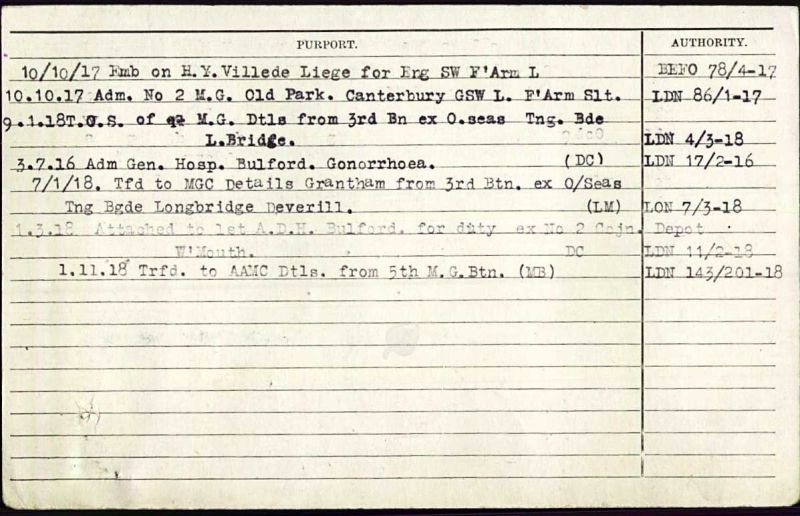 PURPORT. AUTHORITY.
10/10/17 Emb on H.Y.Villede Liege for Erg SW F'Arm L BEFO 78/4-17
10.10.17 Adm. No 2 M.G. Old Park. Canterbury GSW L. F'Arm Slt. LDN 86/1-17
9.1.18T.O.S. of M.G. Dtls from 3rd Bn ex O.seas Tng. Bde
L.Bridge. LDN 4/3-18
3.7.16 Adm Gen. Hosp. Bulford. Gonorrhoea. (DC) LDN 17/2-16
7/1/18. Tfd to MGC Details Grantham from 3rd Btn. ex O/Seas
Tng Bgde Longbridge Deverill. (LM) LON 7/3-18
1.3.18 Attached to 1st A.D.H. Bulford. for duty ex No 2 Cojn. Depot
W'Mouth. DC LDN 11/2-18
1.11.18 Trfd. to AAMC Dtls. from 5th M.G.Btn. (MB) LDN 143/201-18